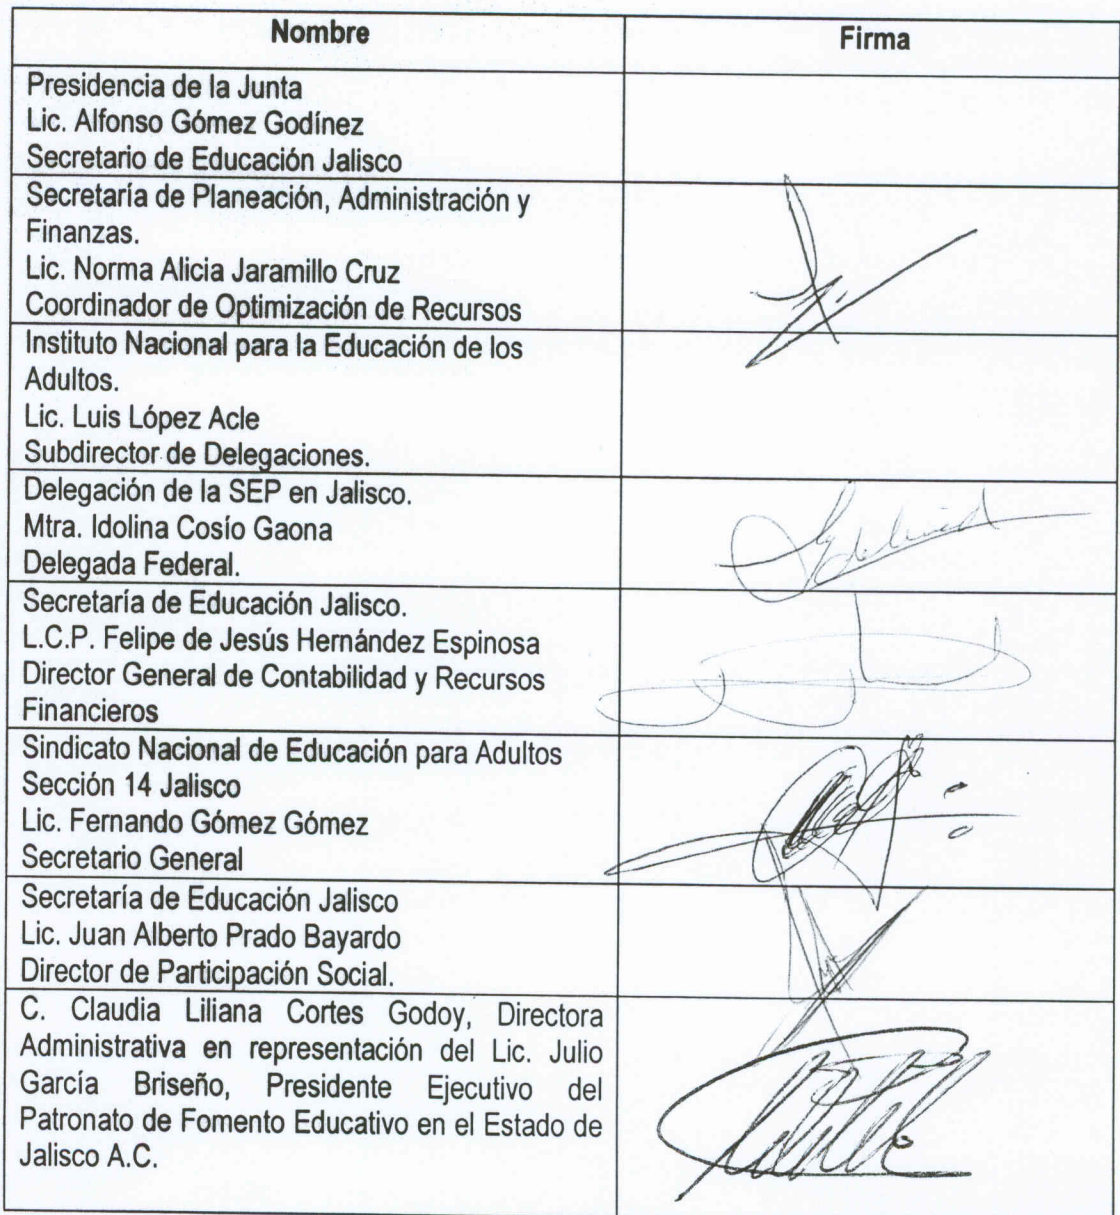 Nombre
Firma
Presidencia de la Junta
Lic. Alfonso Gómez Godínez
Secretario de Educación Jalisco
Secretaría de Planeación, Administración y
Finanzas.
Lic. Norma Alicia Jaramillo Cruz
Coordinador de Optimización de Recursos
Instituto Nacional para la Educación de los
Adultos.
Lic. Luis López Acle
Subdirector de Delegaciones.
Delegación de la SEP en Jalisco.
Mtra. Idolina Cosío Gaona
Delegada Federal.
Secretaría de Educación Jalisco.
L.C.P. Felipe de Jesús Hernández Espinosa
Director General de Contabilidad y Recursos
Financieros
Sindicato Nacional de Educación para Adultos
Sección 14 Jalisco
Lic. Fernando Gómez Gómez
Secretario General
Secretaría de Educación Jalisco
Lic. Juan Alberto Prado Bayardo
Director de Participación Social.
C. Claudia Liliana Cortes Godoy, Directora
Administrativa en representación del Lic. Julio
García Briseño, Presidente Ejecutivo del
Patronato de Fomento Educativo en el Estado de
Jalisco A.C.